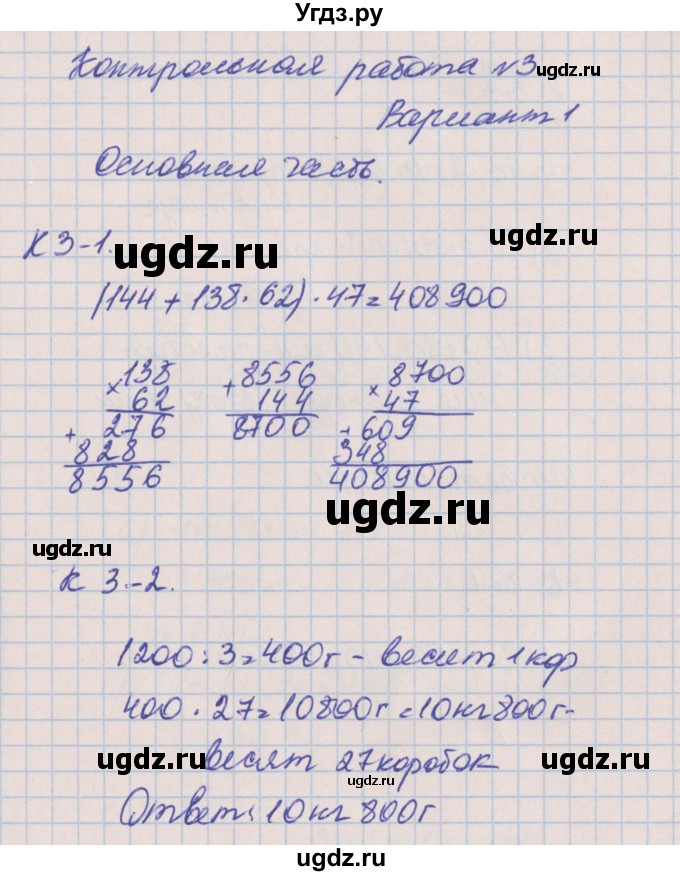 Угдз.ру
Контрольная работа №3
ugdz.ru
Вариант 1
Основная часть.
К 3-1.
ugdz.ru
ugdz.ru
(144 + 138 · 62) · 47 = 408900
138 8556 8700
× 62 + 144 × 47
276 8700 + 609
+ 828 348
8556 408900
ugdz.ru
ugdz.ru
К 3-2.
1200 : 3 = 400г - весит 1 кор
400 · 27 = 10800г = 10кг 800г -
ugdz.ru весят 27 коробок ugdz.ru
ugdz.ru
Ответ: 10кг 800г
ugdz.ru